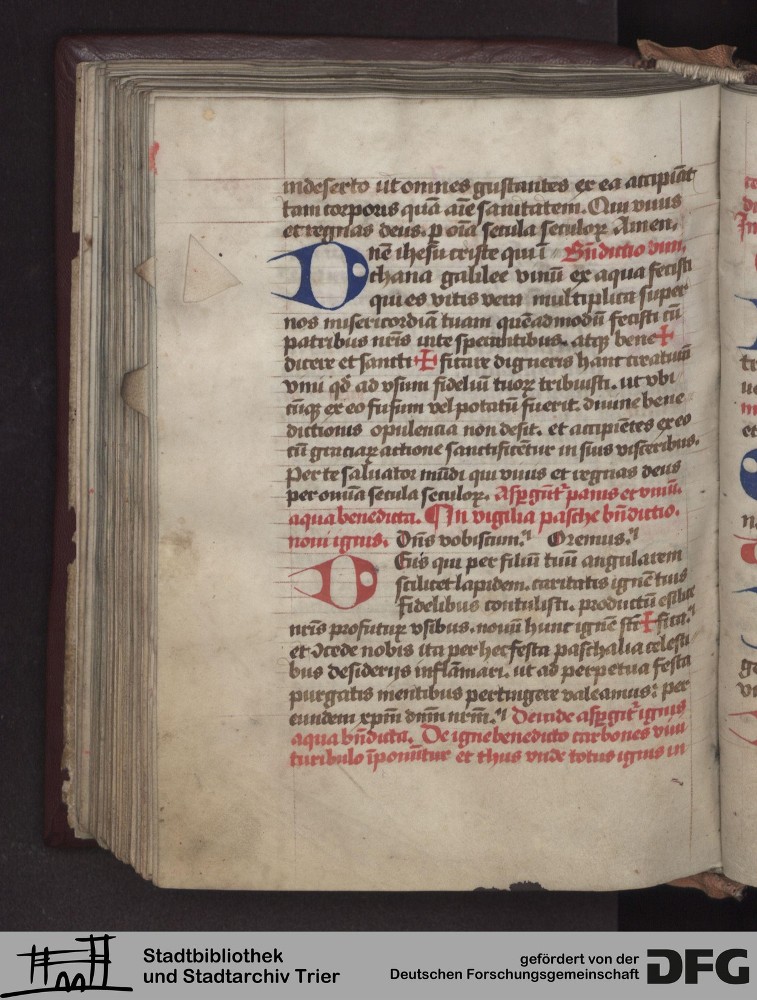 indeserto ut omnes gustantes ex ea accipiāt
tam corporis quā aīe sanitatem. Qui viuis
et regnas deus. p oīa secula seculoꝝ Amen.
Dnē ihesu criste qui ī Bn̄dictio vini.
chana galilee vinū ex aqua fecisti
qui es vitis vera multiplica super
nos misericordiā tuam quēadmodū fecisti cū
patribus nr̄is in te sperantibus. atqꝫ bene✠
dicere et sancti ✠ ficare digneris hanc creaturā
vini qd̄ ad vsum fideliū tuoꝝ tribuisti. ut vbi
cūqꝫ ex eo fusum vel potatū fuerit. diuine bene
dictionis opulencia non desit. et accipiētes ex eo
cū graciaꝝ actione sanctificētur in suis visceribus.
Per te saluator mūdi qui viuis et regnas deus
per omnia secula seculoꝝ. Aspgit᷑ panis et vinū.
aqua benedicta. ¶ In vigilia pasche bn̄dictio.
noui ignis. Dn̄s vobiscum. Oremus.
Deus qui per filiū tuū angularem
scilicet lapidem. caritatis ignē tuis
fidelibus contulisti. productū e silice
nr̄is profuturꝝ vsibus. nouū hunc ignē sc̄i✠fica.
et ꝯcede nobis ita per hec festa paschalia celesti
bus desiderijs inflāmari. ut ad perpetua festa
purgatis mentibus pertingere valeamus: per
eundem xp̄m dnm̄ nrm̄. Deinde aspgit᷑ ignis
aqua bn̄dicta. De igne benedicto carbones viui
turibulo īponūtur et thus vnde totus ignis in
Stadtbibliothek
und Stadtarchiv Trier
gefördert von der
Deutschen Forschungsgemeinschaft
DFG